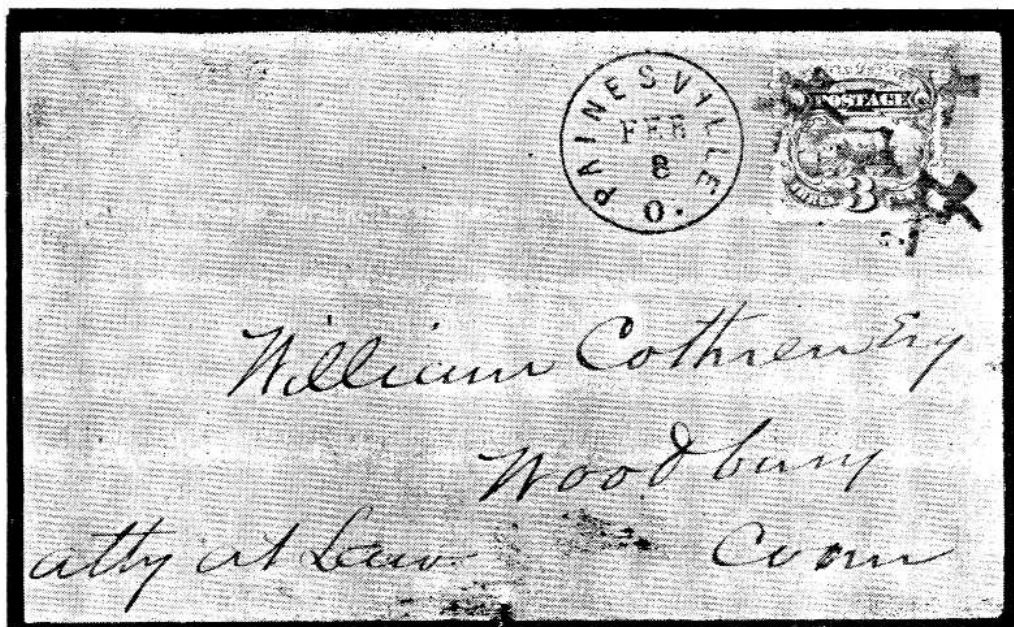 PAINESVYLLE
FEB
8
O.
POSTAGE
3
William Cothren Esq
Woodbury
atty at Law Conn